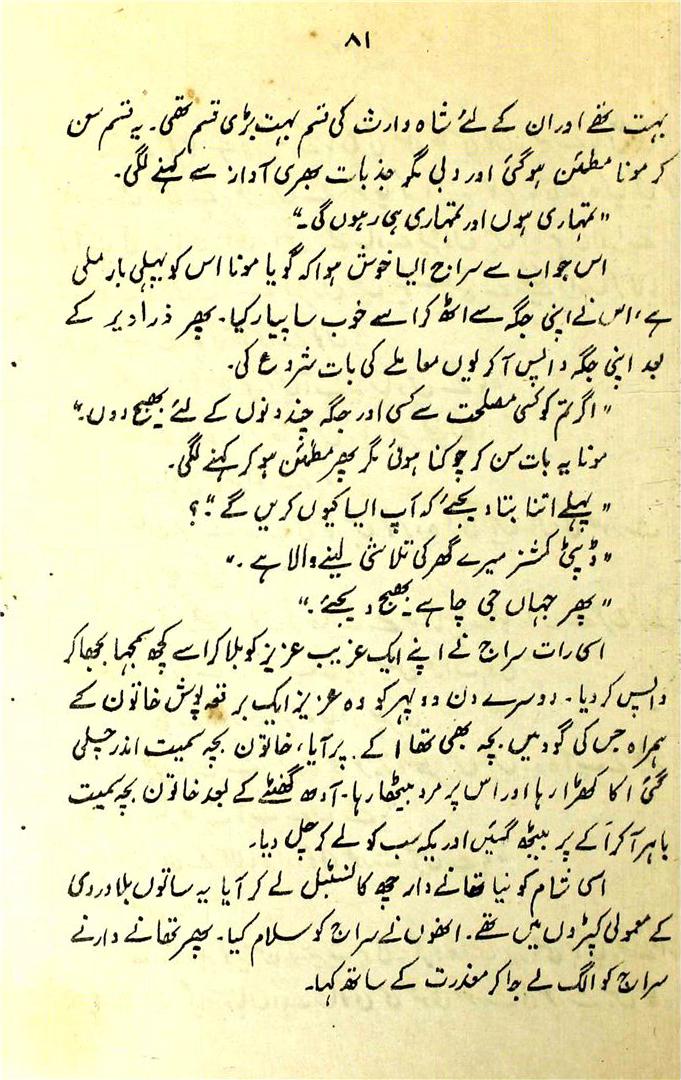 ۸۱
بہت تھے اور ان کے لئے شاہ وارث کی قسم بہت بڑی قسم تھی۔ یہ قسم سن
کر مونا مطمئن ہو گئی اور دبی مگر جذبات بھری آواز سے کہنے لگی۔
"تمہاری ہوں اور تمہاری ہی رہوں گی۔"
اس جواب سے سراج ایسا خوش ہوا کہ گویا مونا اس کو پہلی بار ملی
ہے، اس نے اپنی جگہ سے اٹھ کر اسے خوب سا پیار کیا۔ پھر ذرا دیر کے
بعد اپنی جگہ واپس آ کر یوں معاملے کی بات شروع کی۔
"اگر تم کو کسی مصلحت سے کسی اور جگہ چند دنوں کے لئے بھیج دوں۔"
مونا یہ بات سن کر چوکنا ہوئی مگر پھر مطمئن ہو کر کہنے لگی۔
"پہلے اتنا بتا دیجئے کہ آپ ایسا کیوں کریں گے"؟
"ڈپٹی کمشنر میرے گھر کی تلاشی لینے والا ہے۔"
"پھر جہاں جی چاہے بھیج دیجئے۔"
اسی رات سراج نے اپنے ایک غریب عزیز کو بلا کر اسے کچھ سمجھا بجھا کر
واپس کر دیا۔ دوسرے دن دوپہر کو وہ عزیز ایک برقعہ پوش خاتون کے
ہمراہ جس کی گود میں بچہ بھی تھا اکے پر آیا، خاتون بچہ سمیت اندر چلی
گئی اکا کھڑا رہا اور اس پر مرد بیٹھا رہا۔ آدھ گھنٹے کے بعد خاتون بچہ سمیت
باہر آ کر اکے پر بیٹھ گئیں اور یکہ سب کو لے کر چل دیا۔
اسی شام کو نیا تھانے دار چھ کانسٹبل لے کر آیا یہ ساتوں بلا وردی
کے معمولی کپڑوں میں تھے۔ انھوں نے سراج کو سلام کیا۔ پھر تھانے دار نے
سراج کو الگ لے جا کر معذرت کے ساتھ کہا۔